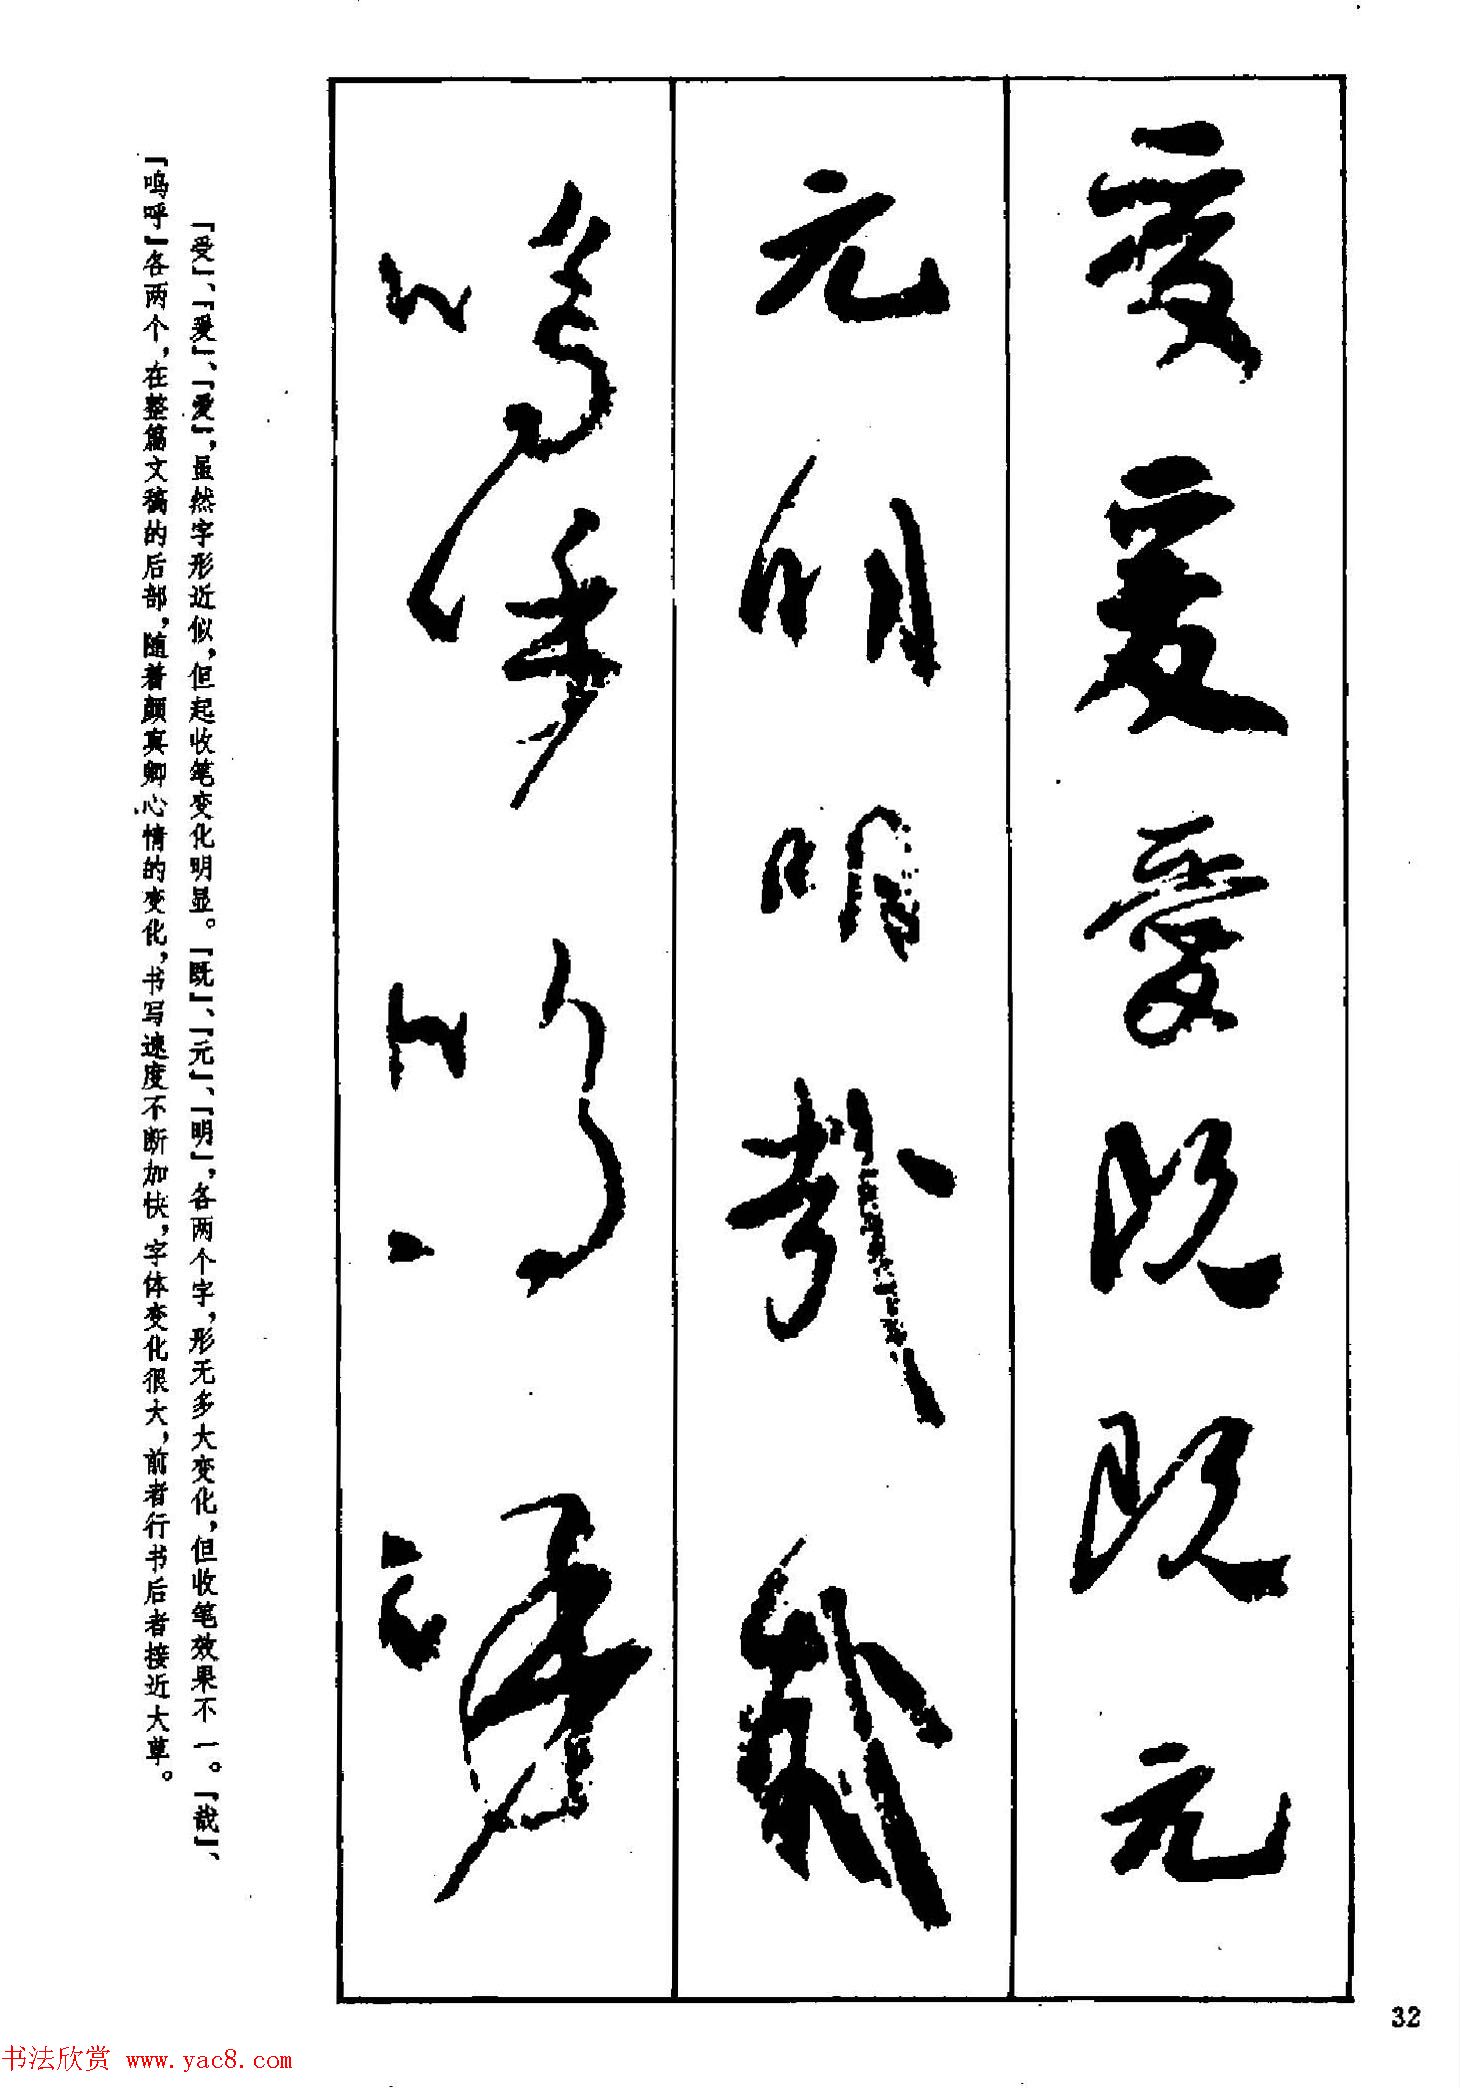 受爰爱既既元
元明明哉哉
呜呼呜呼
「受」、「爰」、「爱」，虽然字形近似，但起收笔变化明显。「既」、「元」、「明」，各两个字，形无多大变化，但收笔效果不一。「哉」、
「呜呼」各两个，在整篇文稿的后部，随着颜真卿心情的变化，书写速度不断加快，字体变化很大，前者行书后者接近大草。
32
书法欣赏 www.yac8.com